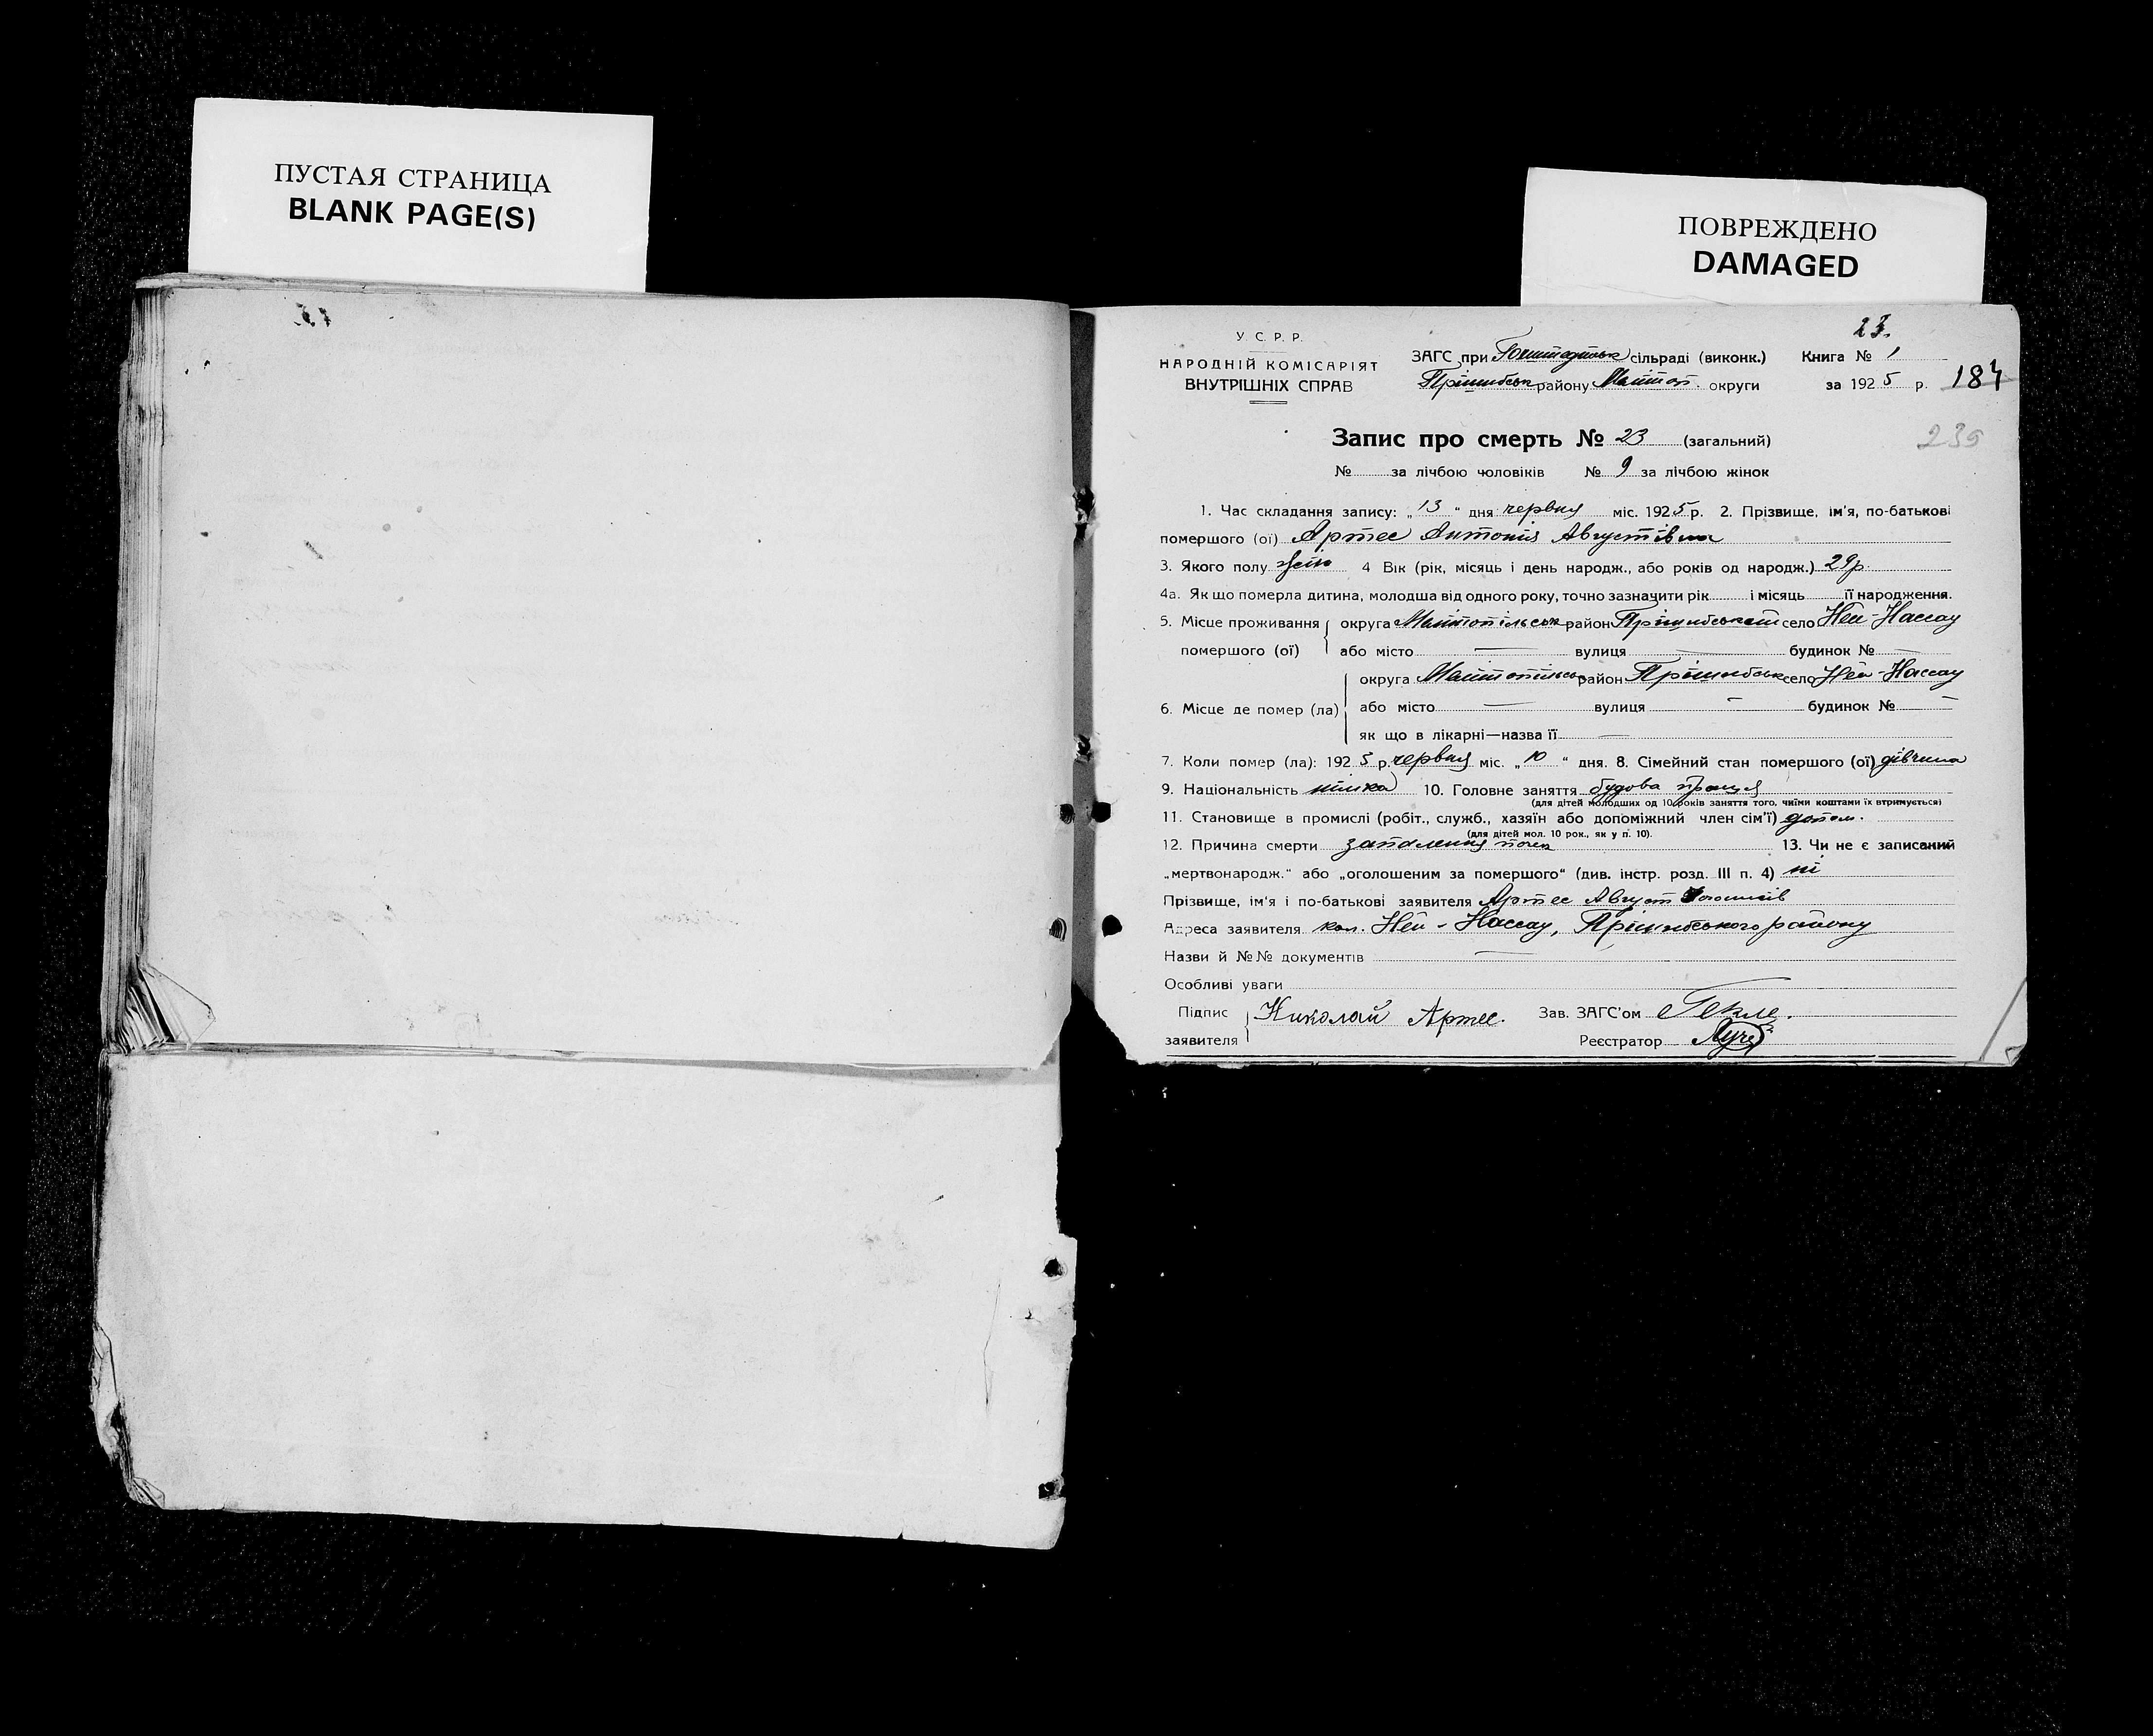 ПУСТАЯ СТРАНИЦА
BLANK PAGE(S)
ПОВРЕЖДЕНО
DAMAGED
23.
У. С. Р. Р.
НАРОДНІЙ КОМІСАРІЯТ
ВНУТРІШНІХ СПРАВ
ЗАГС при сільраді (виконк.)
Книга № 1
Прішибськ району Малітоп. округи
за 1925 р.
184
Запис про смерть № 23 (загальний)
235
№ за лічбою чоловіків № 9 за лічбою жінок
1. Час складання запису: „13“ дня червня міс. 1925 р. 2. Прізвище, ім'я, по-батькові
помершого (ої) Артес Антонія Августівна
3. Якого полу жін 4 Вік (рік, місяць і день народж., або років од народж.) 29 р.
4а. Як що померла дитина, молодша від одного року, точно зазначити рік і місяць її народження.
5. Місце проживання помершого (ої) округа Малітопільськ район Прішибський село Ней-Нассау
або місто — вулиця — будинок № —
6. Місце де помер (ла) округа Малітопільськ район Прішибськ село Ней-Нассау
або місто — вулиця — будинок № —
як що в лікарні—назва її —
7. Коли помер (ла): 1925 р. червня міс. „10“ дня. 8. Сімейний стан помершого (ої) дівчина
9. Національність німка 10. Головне заняття будова праця
(для дітей молодших од 10 років заняття того, чиїми коштами їх втримується)
11. Становище в промислі (робіт., служб., хазяїн або допоміжний член сім'ї) допом.
(для дітей мол. 10 рок., як у п. 10).
12. Причина смерти запалення почек 13. Чи не є записаний
„мертвонародж.“ або „оголошеним за помершого“ (див. інстр. розд. III п. 4) ні
Прізвище, ім'я і по-батькові заявителя Артес Август
Адреса заявителя кол. Ней-Нассау, Прішибського району
Назви й №№ документів —
Особливі уваги
Підпис заявителя Николай Артес.
Зав. ЗАГС'ом
Реєстратор